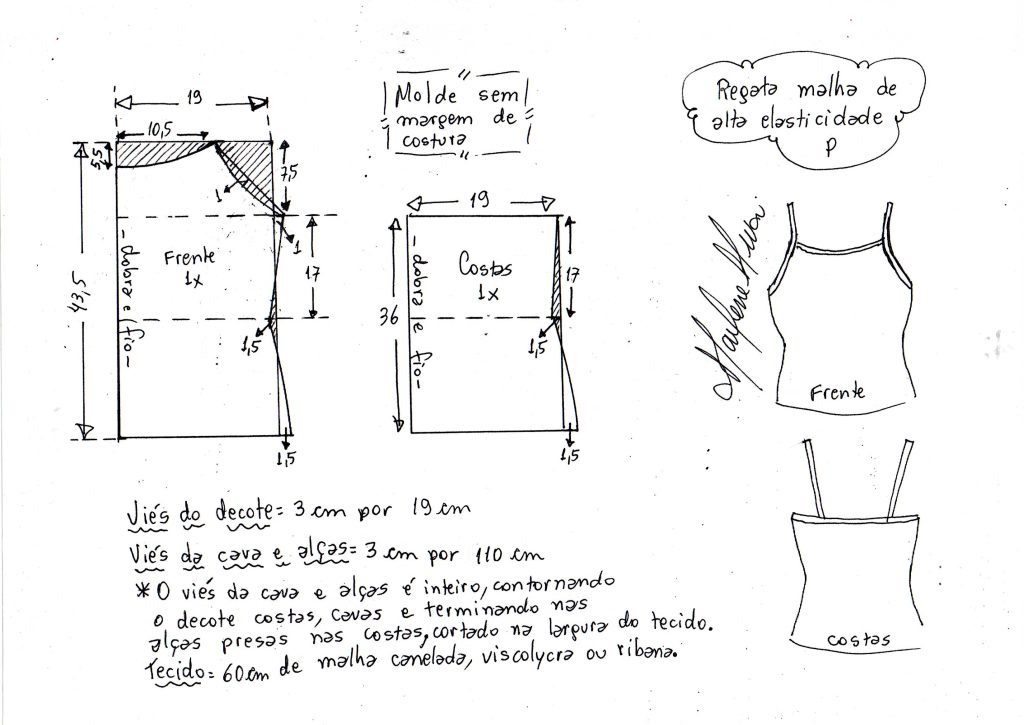 19
10,5
5,5
7,5
1
1
Frente
1x
- dobra e fio -
43,5
17
1,5
1,5
Molde sem
margem de
costura
19
Costas
1x
- dobra e fio -
36
17
1,5
1,5
Regata malha de
alta elasticidade
P
Marlene Mukai
Frente
costas
Viés do decote = 3 cm por 19 cm
Viés da cava e alças = 3 cm por 110 cm
* O viés da cava e alças é inteiro, contornando
o decote costas, cavas e terminando nas
alças presas nas costas, cortado na largura do tecido.
Tecido = 60 cm de malha canelada, viscolycra ou ribana.